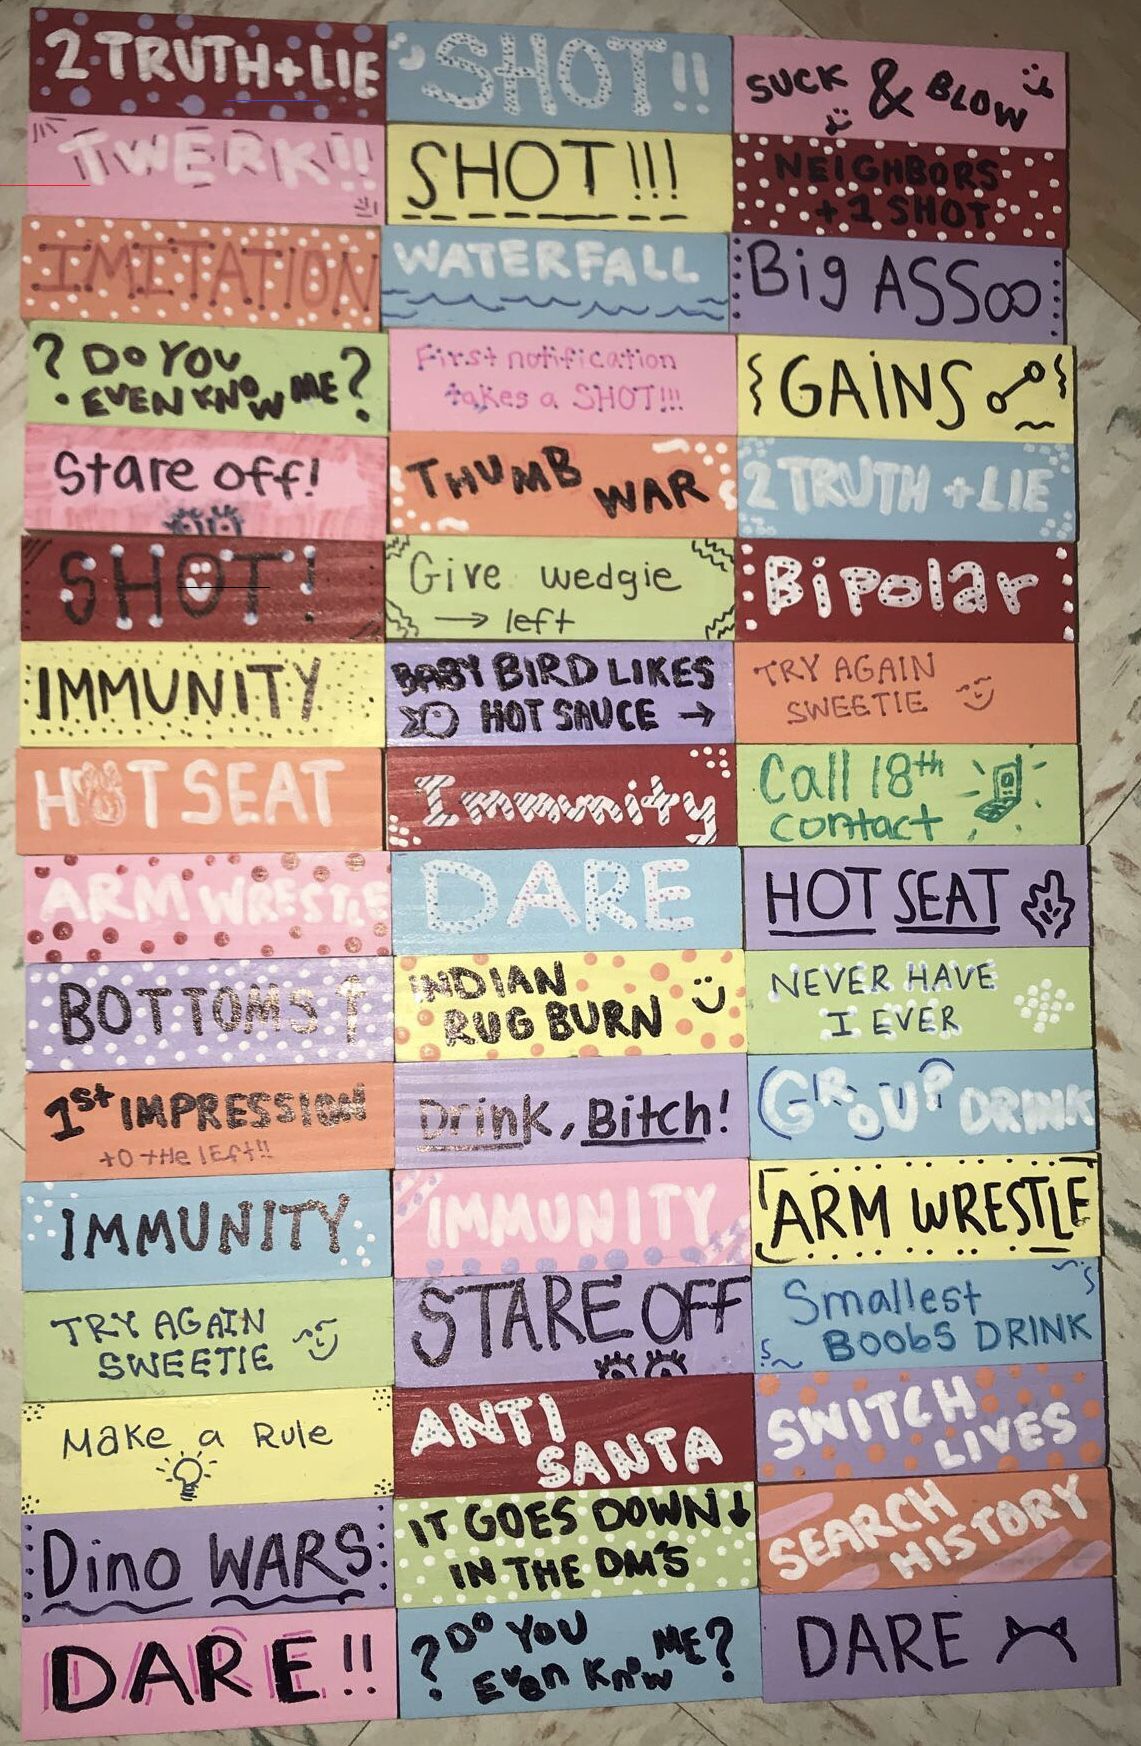 2 TRUTH + LIE
SHOT!!
SUCK & BLOW
TWERK!!
SHOT!!!
NEIGHBORS
+ 1 SHOT
IMITATION
WATERFALL
Big ASS
? DO YOU
EVEN KNOW ME?
First notification
takes a SHOT!!!
GAINS
Stare off!
THUMB WAR
2 TRUTH + LIE
SHOT!
Give wedgie
→ left
Bipolar
IMMUNITY
BABY BIRD LIKES
HOT SAUCE →
TRY AGAIN
SWEETIE
HOT SEAT
Immunity
Call 18th
contact
ARM WRESTLE
DARE
HOT SEAT
BOTTOMS ↑
INDIAN
RUG BURN
NEVER HAVE
I EVER
1st IMPRESSION
to the left!!
Drink, Bitch!
GROUP DRINK
IMMUNITY
IMMUNITY
ARM WRESTLE
TRY AGAIN
SWEETIE
STARE OFF
Smallest
BOObS DRINK
Make a Rule
ANTI
SANTA
SWITCH
LIVES
Dino WARS
IT GOES DOWN ↓
IN THE DM'S
SEARCH
HISTORY
DARE!!
? DO YOU
Even Know ME?
DARE